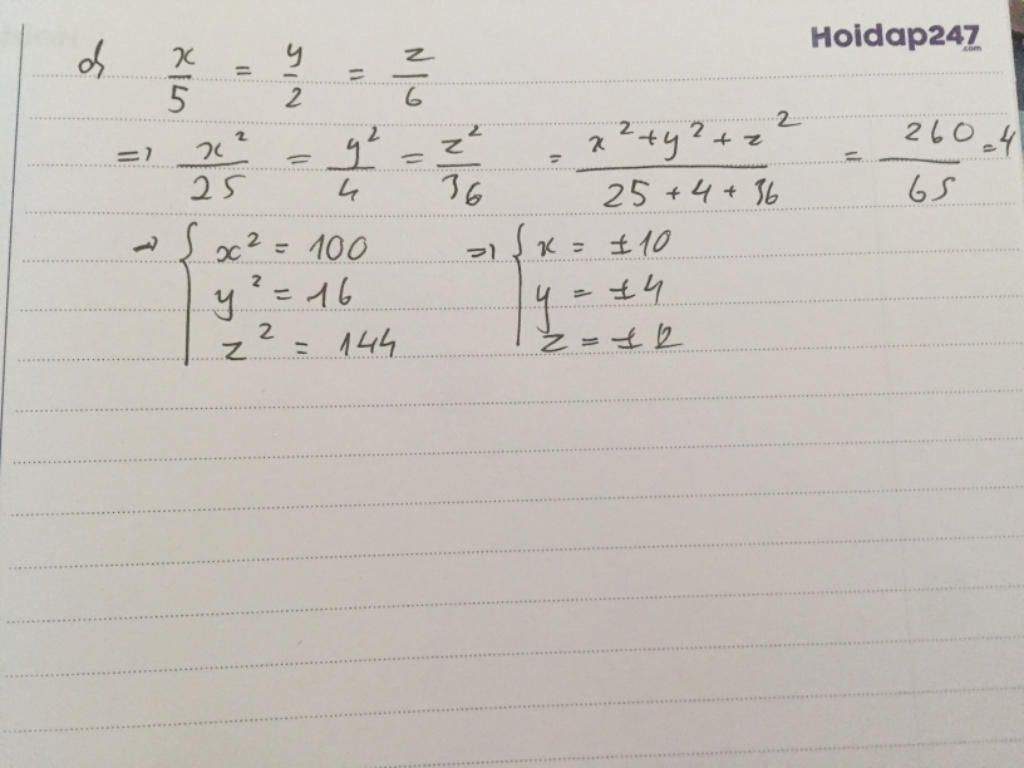 Hoidap247
.com
d) x/5 = y/2 = z/6
=> x²/25 = y²/4 = z²/36 = (x²+y²+z²)/(25+4+36) = 260/65 = 4
=> { x² = 100 => { x = ±10
y² = 16 y = ±4
z² = 144 z = ±12